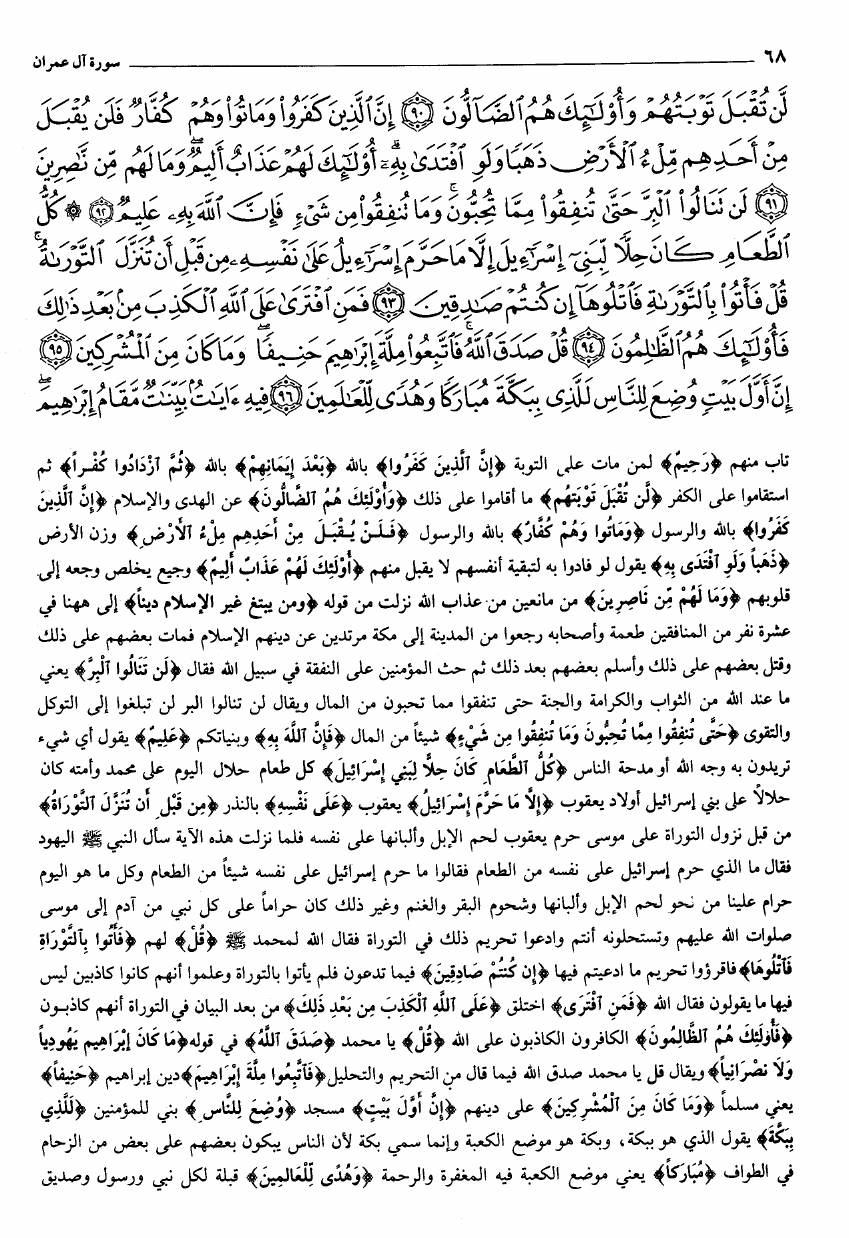 ٦٨ سورة آل عمران
لَّن تُقْبَلَ تَوْبَتُهُمْ وَأُوْلَٰٓئِكَ هُمُ ٱلضَّآلُّونَ ٩٠ إِنَّ ٱلَّذِينَ كَفَرُواْ وَمَاتُواْ وَهُمْ كُفَّارٌ فَلَن يُقْبَلَ
مِنْ أَحَدِهِم مِّلْءُ ٱلْأَرْضِ ذَهَبًا وَلَوِ ٱفْتَدَىٰ بِهِۦٓۗ أُوْلَٰٓئِكَ لَهُمْ عَذَابٌ أَلِيمٌۖ وَمَا لَهُم مِّن نَّٰصِرِينَ
٩١ لَن تَنَالُواْ ٱلْبِرَّ حَتَّىٰ تُنفِقُواْ مِمَّا تُحِبُّونَۚ وَمَا تُنفِقُواْ مِن شَىْءٍ فَإِنَّ ٱللَّهَ بِهِۦ عَلِيمٌ ٩٢ ۞ كُلُّ
ٱلطَّعَامِ كَانَ حِلًّا لِّبَنِىٓ إِسْرَٰٓءِيلَ إِلَّا مَا حَرَّمَ إِسْرَٰٓءِيلُ عَلَىٰ نَفْسِهِۦ مِن قَبْلِ أَن تُنَزَّلَ ٱلتَّوْرَىٰةُۚ
قُلْ فَأْتُواْ بِٱلتَّوْرَىٰةِ فَٱتْلُوهَآ إِن كُنتُمْ صَٰدِقِينَ ٩٣ فَمَنِ ٱفْتَرَىٰ عَلَى ٱللَّهِ ٱلْكَذِبَ مِنۢ بَعْدِ ذَٰلِكَ
فَأُوْلَٰٓئِكَ هُمُ ٱلظَّٰلِمُونَ ٩٤ قُلْ صَدَقَ ٱللَّهُۗ فَٱتَّبِعُواْ مِلَّةَ إِبْرَٰهِيمَ حَنِيفًاۖ وَمَا كَانَ مِنَ ٱلْمُشْرِكِينَ ٩٥
إِنَّ أَوَّلَ بَيْتٍ وُضِعَ لِلنَّاسِ لَلَّذِى بِبَكَّةَ مُبَارَكًا وَهُدًى لِّلْعَٰلَمِينَ ٩٦ فِيهِ ءَايَٰتٌۢ بَيِّنَٰتٌ مَّقَامُ إِبْرَٰهِيمَۖ
تاب منهم ﴿رَحِيمٌ﴾ لمن مات على التوبة ﴿إِنَّ ٱلَّذِينَ كَفَرُوا﴾ بالله ﴿بَعْدَ إِيمَانِهِمْ﴾ بالله ﴿ثُمَّ ٱزْدَادُوا كُفْراً﴾ ثم
استقاموا على الكفر ﴿لَّن تُقْبَلَ تَوْبَتُهُم﴾ ما أقاموا على ذلك ﴿وَأُوْلَئِكَ هُمُ ٱلضَّالُّونَ﴾ عن الهدى والإسلام ﴿إِنَّ ٱلَّذِينَ
كَفَرُوا﴾ بالله والرسول ﴿وَمَاتُوا وَهُمْ كُفَّارٌ﴾ بالله والرسول ﴿فَلَنْ يُقْبَلَ مِنْ أَحَدِهِم مِلْءُ ٱلأَرْضِ﴾ وزن الأرض
﴿ذَهَباً وَلَوِ ٱفْتَدَى بِهِ﴾ يقول لو فادوا به لتبقية أنفسهم لا يقبل منهم ﴿أُوْلَئِكَ لَهُمْ عَذَابٌ أَلِيمٌ﴾ وجيع يخلص وجعه إلى
قلوبهم ﴿وَمَا لَهُمْ مِّن نَاصِرِينَ﴾ من مانعين من عذاب الله نزلت من قوله ﴿ومن يبتغ غير الإسلام ديناً﴾ إلى ههنا في
عشرة نفر من المنافقين طعمة وأصحابه رجعوا من المدينة إلى مكة مرتدين عن دينهم الإسلام فمات بعضهم على ذلك
وقتل بعضهم على ذلك وأسلم بعضهم بعد ذلك ثم حث المؤمنين على النفقة في سبيل الله فقال ﴿لَن تَنَالُوا ٱلْبِرَّ﴾ يعني
ما عند الله من الثواب والكرامة والجنة حتى تنفقوا مما تحبون من المال ويقال لن تنالوا البر لن تبلغوا إلى التوكل
والتقوى ﴿حَتَّى تُنفِقُوا مِمَّا تُحِبُّونَ وَمَا تُنفِقُوا مِن شَيْءٍ﴾ شيئاً من المال ﴿فَإِنَّ ٱللَّهَ بِهِ﴾ وبنياتكم ﴿عَلِيمٌ﴾ يقول أي شيء
تريدون به وجه الله أو مدحة الناس ﴿كُلُّ ٱلطَّعَامِ كَانَ حِلًّا لِبَنِي إِسْرَائِيلَ﴾ كل طعام حلال اليوم على محمد وأمته كان
حلالاً على بني إسرائيل أولاد يعقوب ﴿إِلاَّ مَا حَرَّمَ إِسْرَائِيلُ﴾ يعقوب ﴿عَلَى نَفْسِهِ﴾ بالنذر ﴿مِن قَبْلِ أَن تُنَزَّلَ ٱلتَّوْرَاةُ﴾
من قبل نزول التوراة على موسى حرم يعقوب لحم الإبل وألبانها على نفسه فلما نزلت هذه الآية سأل النبي ﷺ اليهود
فقال ما الذي حرم إسرائيل على نفسه من الطعام فقالوا ما حرم إسرائيل على نفسه شيئاً من الطعام وكل ما هو اليوم
حرام علينا من نحو لحم الإبل وألبانها وشحوم البقر والغنم وغير ذلك كان حراماً على كل نبي من آدم إلى موسى
صلوات الله عليهم وتستحلونه أنتم وادعوا تحريم ذلك في التوراة فقال الله لمحمد ﷺ ﴿قُلْ﴾ لهم ﴿فَأْتُوا بِٱلتَّوْرَاةِ
فَٱتْلُوهَا﴾ فاقرؤوا تحريم ما ادعيتم فيها ﴿إِن كُنْتُمْ صَادِقِينَ﴾ فيما تدعون فلم يأتوا بالتوراة وعلموا أنهم كانوا كاذبين ليس
فيها ما يقولون فقال الله ﴿فَمَنِ ٱفْتَرَى﴾ اختلق ﴿عَلَى ٱللَّهِ ٱلْكَذِبَ مِن بَعْدِ ذَلِكَ﴾ من بعد البيان في التوراة أنهم كاذبون
﴿فَأُوْلَئِكَ هُمُ ٱلظَّالِمُونَ﴾ الكافرون الكاذبون على الله ﴿قُلْ﴾ يا محمد ﴿صَدَقَ ٱللَّهُ﴾ في قوله ﴿مَا كَانَ إِبْرَاهِيم يَهُودِياً
وَلَا نَصْرَانِياً﴾ ويقال قل يا محمد صدق الله فيما قال من التحريم والتحليل ﴿فَٱتَّبِعُوا مِلَّةَ إِبْرَاهِيمَ﴾ دين إبراهيم ﴿حَنِيفاً﴾
يعني مسلماً ﴿وَمَا كَانَ مِنَ ٱلْمُشْرِكِينَ﴾ على دينهم ﴿إِنَّ أَوَّلَ بَيْتٍ﴾ مسجد ﴿وُضِعَ لِلنَّاسِ﴾ بني للمؤمنين ﴿لَلَّذِي
بِبَكَّةَ﴾ يقول الذي هو ببكة، وبكة هو موضع الكعبة وإنما سمي بكة لأن الناس يبكون بعضهم على بعض من الزحام
في الطواف ﴿مُبَارَكاً﴾ يعني موضع الكعبة فيه المغفرة والرحمة ﴿وَهُدًى لِّلْعَالَمِينَ﴾ قبلة لكل نبي ورسول وصديق